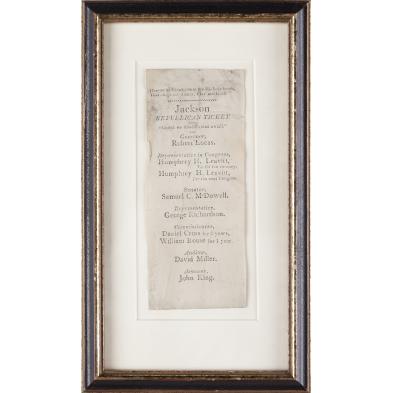 Jackson
REPUBLICAN TICKET
Governor,
Robert Lucas.
Representative in Congress,
Humphrey H. Leavitt,
Humphrey H. Leavitt,
Senator,
Samuel C. McDowell.
Representative,
George Richardson.
Commissioners,
Daniel Cross for 3 years,
William Rouse for 1 year.
Auditor,
David Miller.
Assessor,
John King.